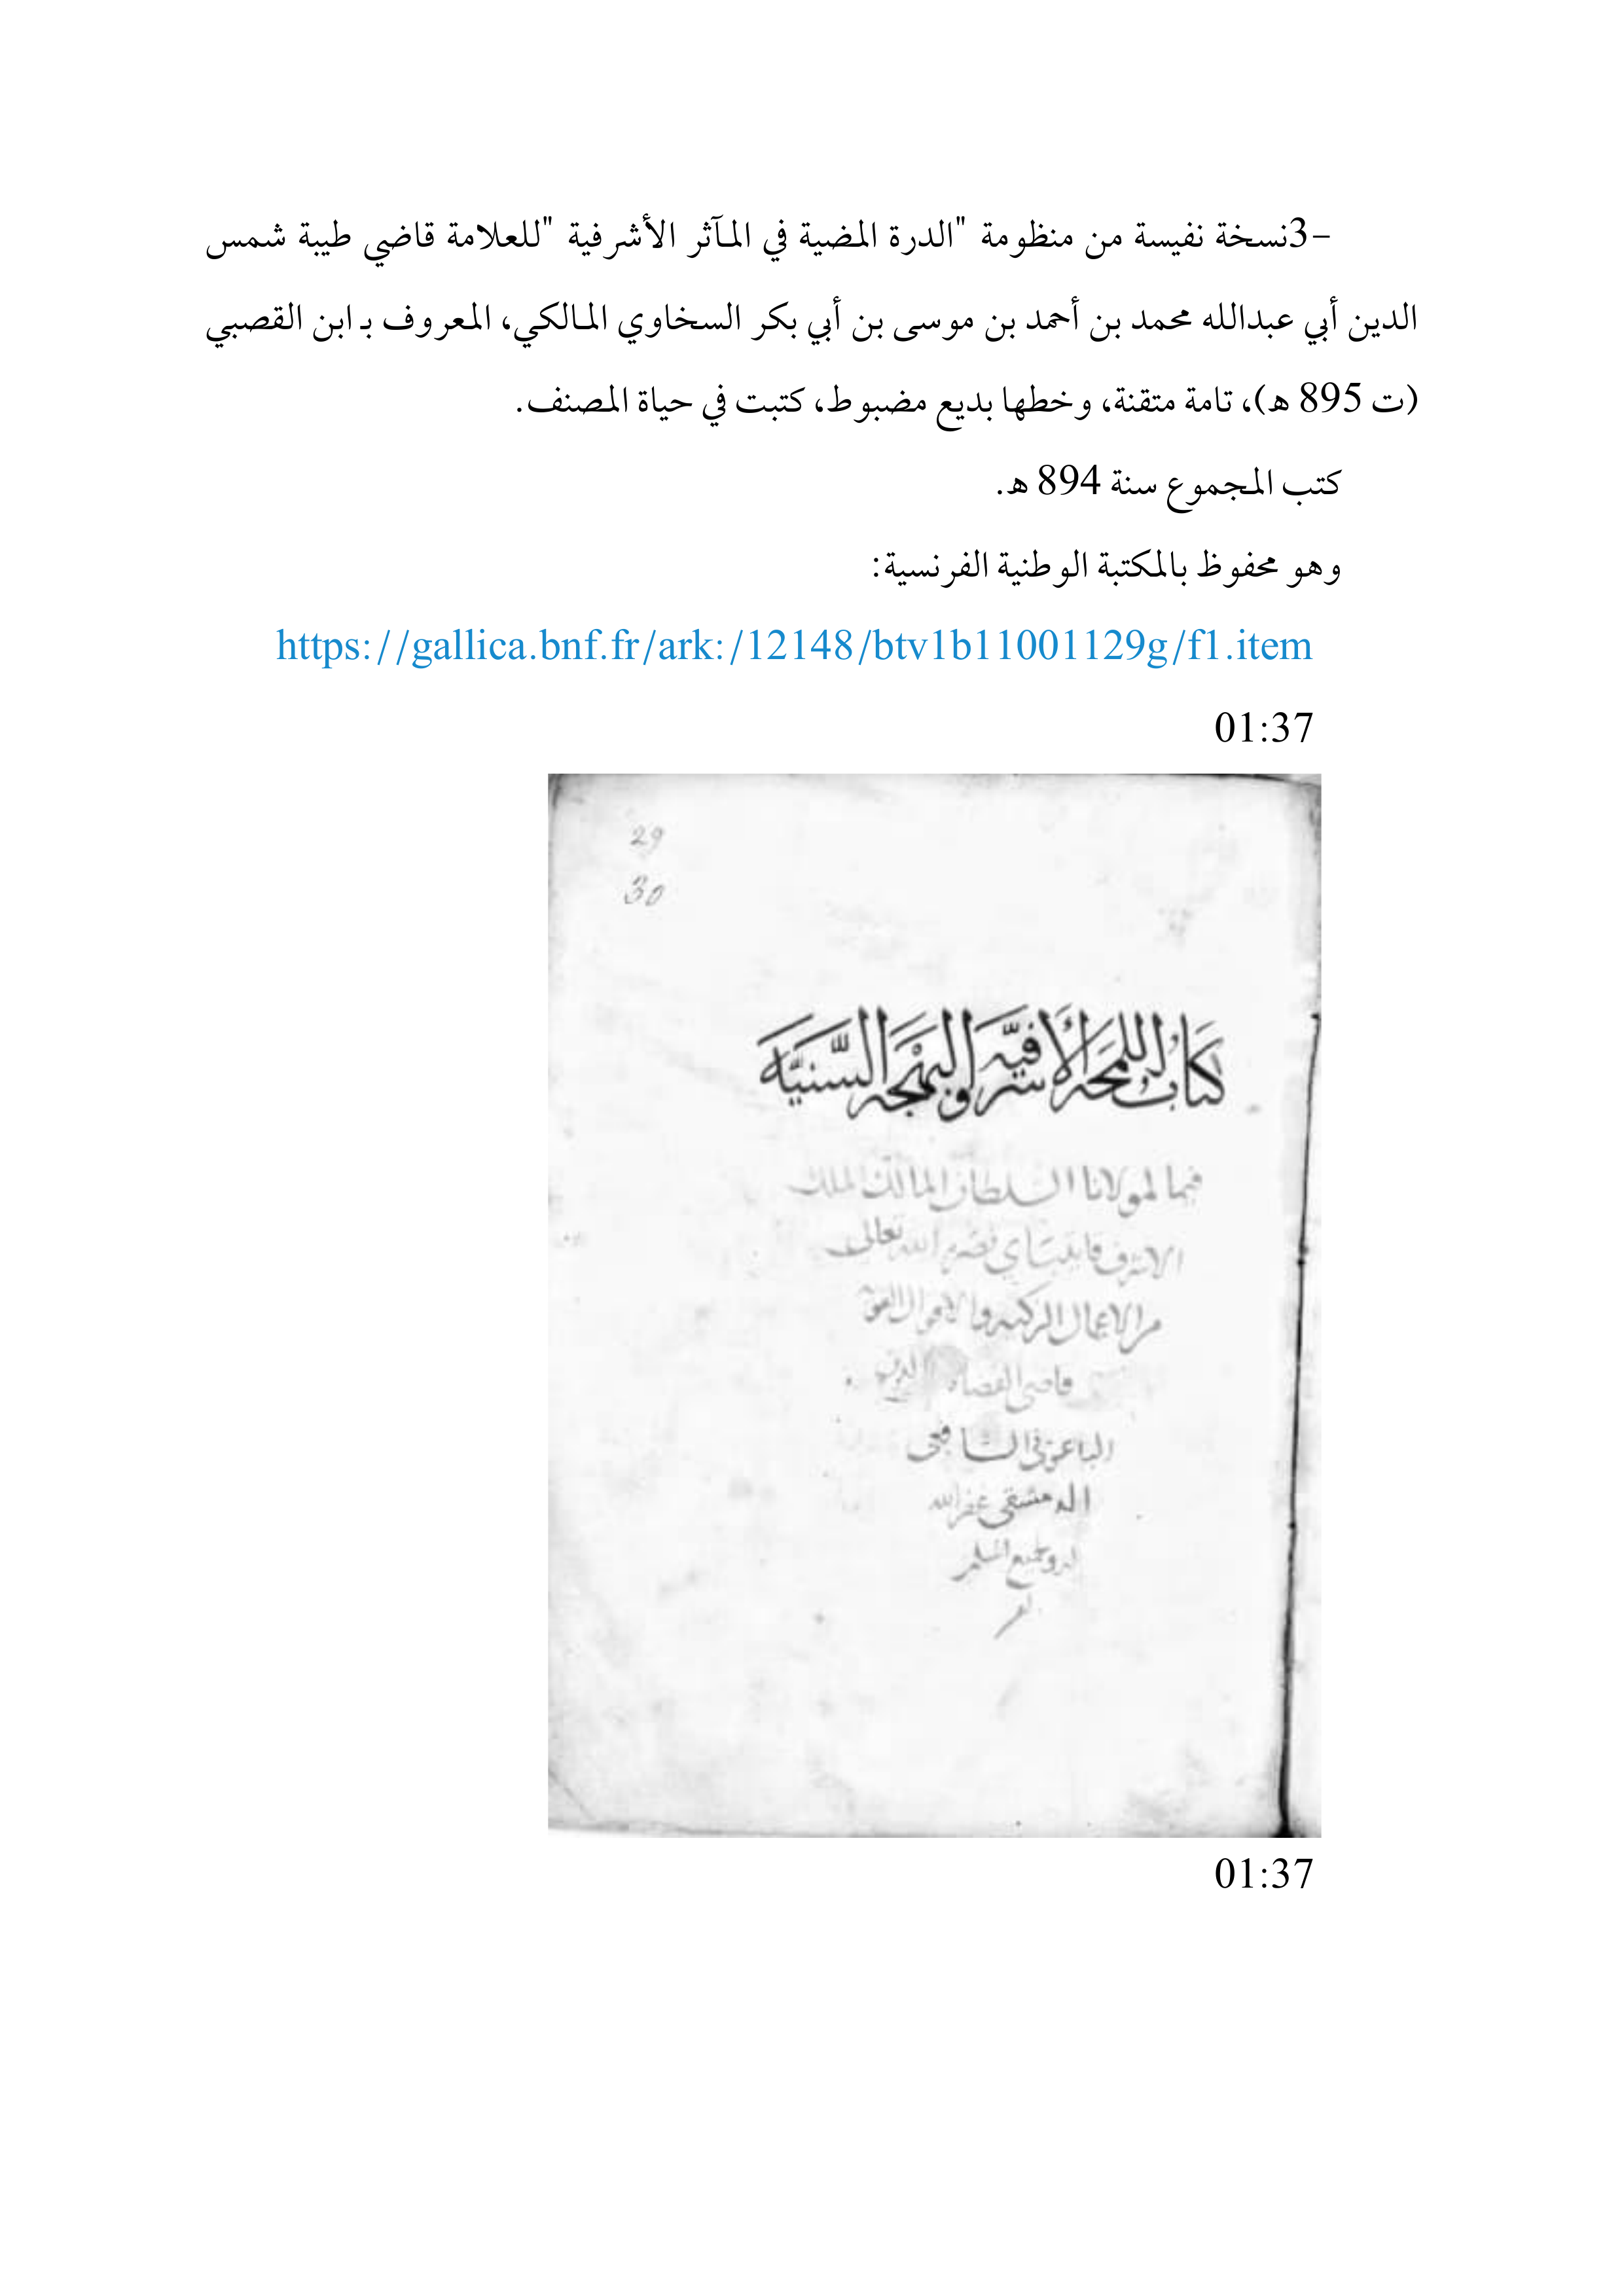 3- نسخة نفيسة من منظومة "الدرة المضية في المآثر الأشرفية" للعلامة قاضي طيبة شمس
الدين أبي عبدالله محمد بن أحمد بن موسى بن أبي بكر السخاوي المالكي، المعروف بـ ابن القصبي
(ت 895 هـ)، تامة متقنة، وخطها بديع مضبوط، كتبت في حياة المصنف.
كتب المجموع سنة 894 هـ.
وهو محفوظ بالمكتبة الوطنية الفرنسية:
https://gallica.bnf.fr/ark:/12148/btv1b11001129g/f1.item
01:37
29
30
كتاب اللمحه الأشرفيّه والبهْجه السَّنيَّه
فيما لمولانا السلطان المالك الملك
الاشرف قايتباي نصره الله تعالى
من الاعمال الزكيه والاقوال
قاضى القضاه الدين
الباعوني الشافعي
الدمشقي غفر الله
له ولجميع المسلمين
01:37